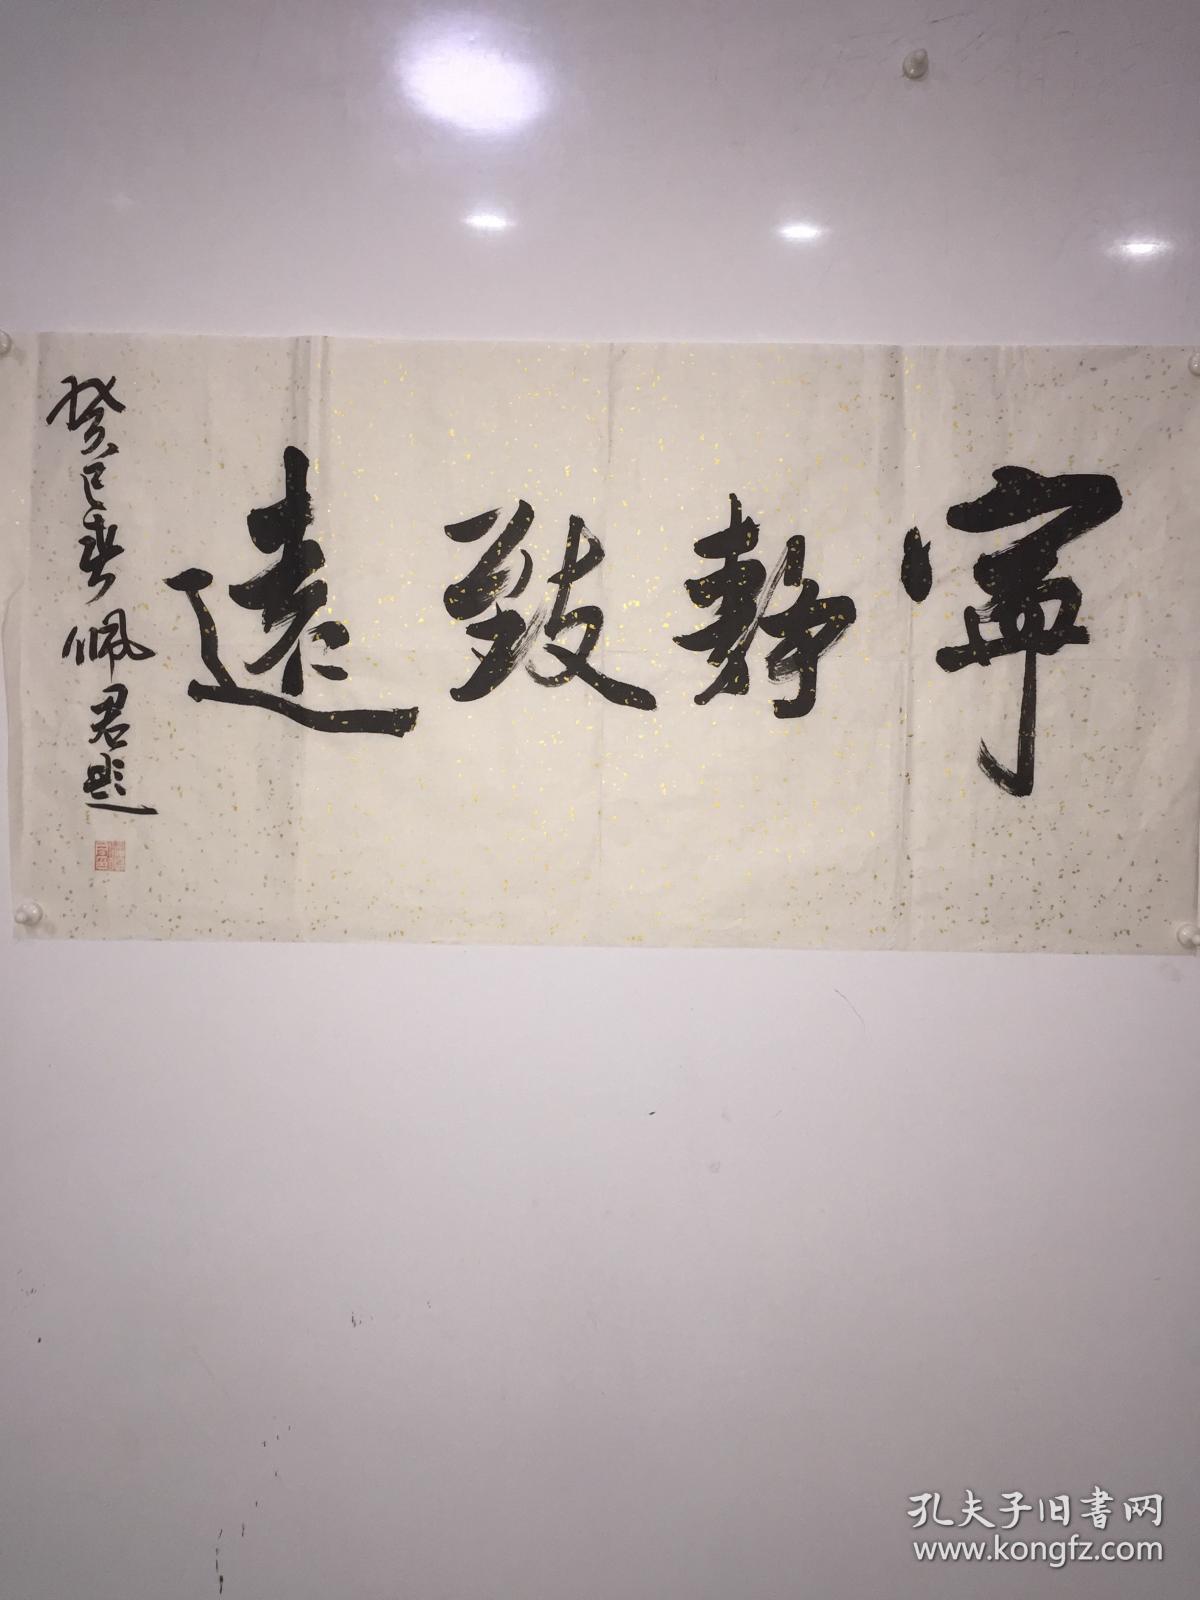 寧静致遠
癸巳春佩君题
孔夫子旧书网
www.kongfz.com